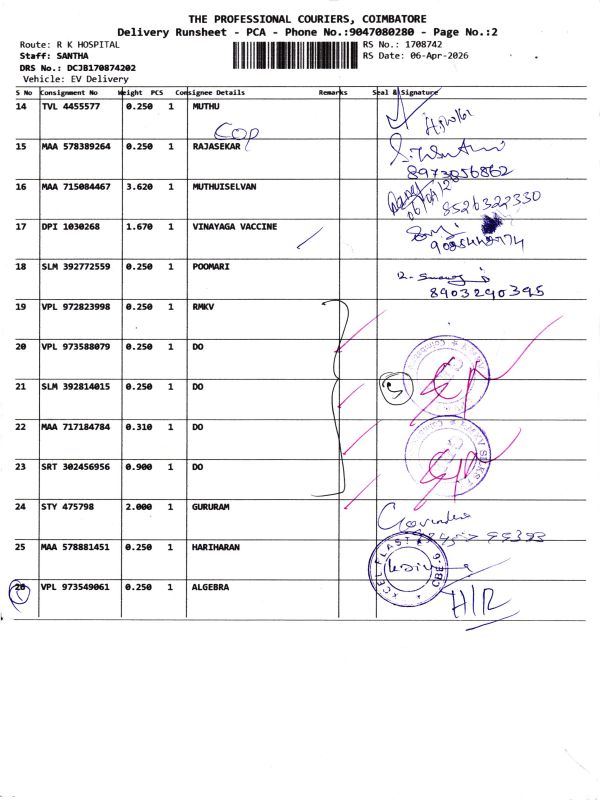 THE PROFESSIONAL COURIERS, COIMBATORE
Delivery Runsheet - PCA - Phone No.:9047080280 - Page No.:2
Route: R K HOSPITAL
RS No.: 1708742
Staff: SANTHA
RS Date: 06-Apr-2026
DRS No.: DCJB170874202
Vehicle: EV Delivery
S No Consignment No Weight PCS Consignee Details Remarks Seal & Signature
14 TVL 4455577 0.250 1 MUTHU
COP
15 MAA 578389264 0.250 1 RAJASEKAR
8973056862
16 MAA 715084467 3.620 1 MUTHUISELVAN
8526322330
17 DPI 1030268 1.670 1 VINAYAGA VACCINE
18 SLM 392772559 0.250 1 POOMARI
8903290395
19 VPL 972823998 0.250 1 RMKV
20 VPL 973588079 0.250 1 DO
21 SLM 392814015 0.250 1 DO
22 MAA 717184784 0.310 1 DO
23 SRT 302456956 0.900 1 DO
24 STY 475798 2.000 1 GURURAM
25 MAA 578881451 0.250 1 HARIHARAN
26 VPL 973549061 0.250 1 ALGEBRA
H/R